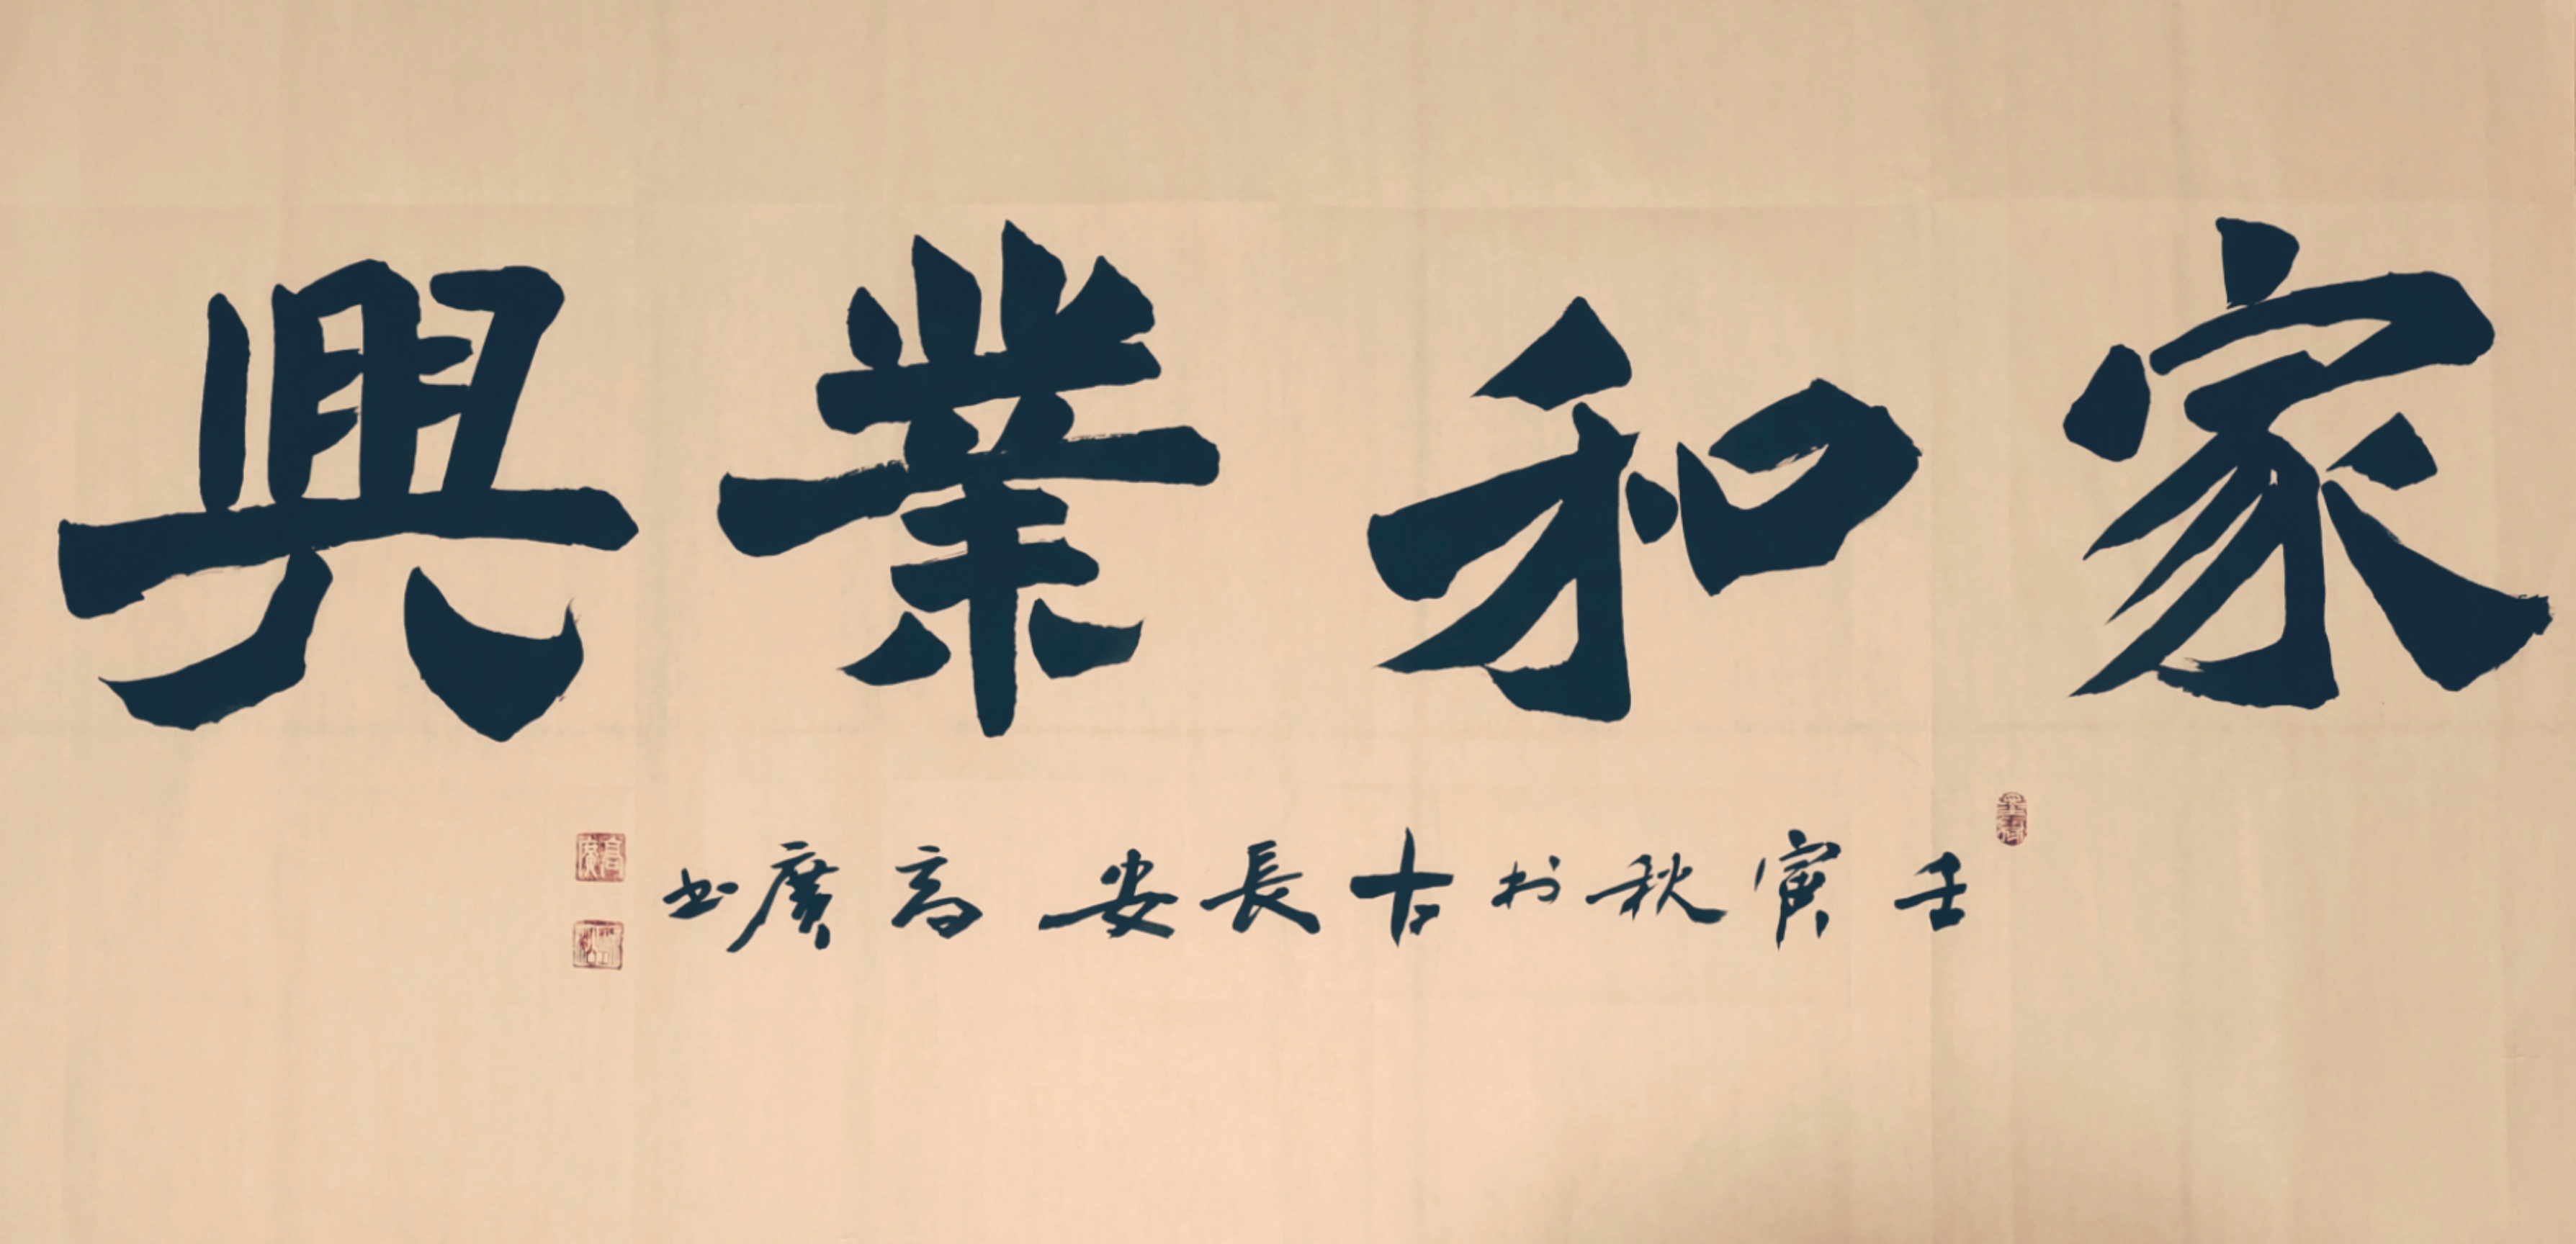 家和業興
壬寅秋於古長安高廣书
高廣